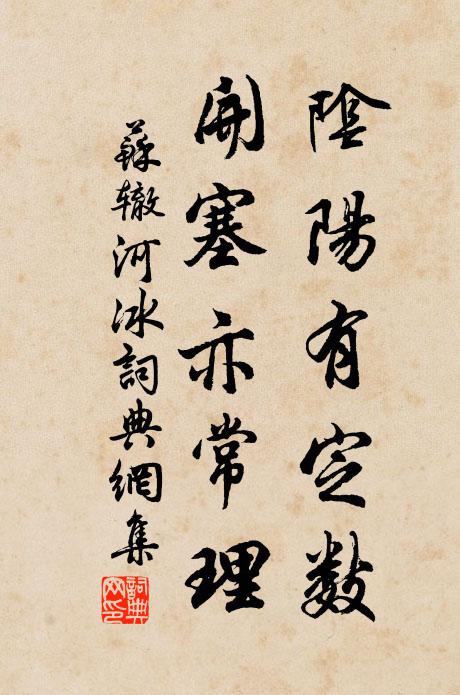 陰陽有定数
開塞亦常理
蘇辙河冰詞典網集
詞典網印